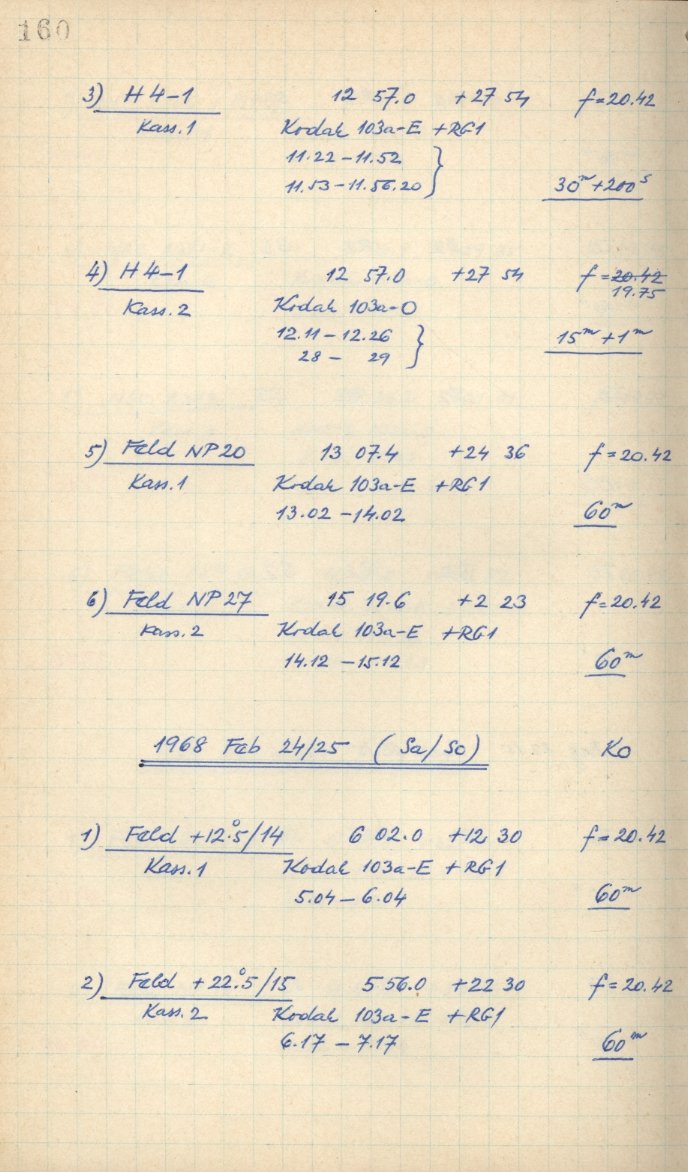 160
3) H4-1 12 57.0 +27 54 f=20.42
Kass.1 Kodak 103a-E +RG1
11.22-11.52
11.53-11.56.20 } 30m+200s
4) H4-1 12 57.0 +27 54 f=20.42
19.75
Kass.2 Kodak 103a-O
12.11-12.26 } 15m+1m
28- 29
5) Feld NP20 13 07.4 +24 36 f=20.42
Kass.1 Kodak 103a-E +RG1
13.02-14.02 60m
6) Feld NP27 15 19.6 +2 23 f=20.42
Kass.2 Kodak 103a-E +RG1
14.12-15.12 60m
1968 Feb 24/25 (Sa/So) Ko
1) Feld +12°.5/14 6 02.0 +12 30 f=20.42
Kass.1 Kodak 103a-E +RG1
5.04-6.04 60m
2) Feld +22°.5/15 5 56.0 +22 30 f=20.42
Kass.2 Kodak 103a-E +RG1
6.17-7.17 60m